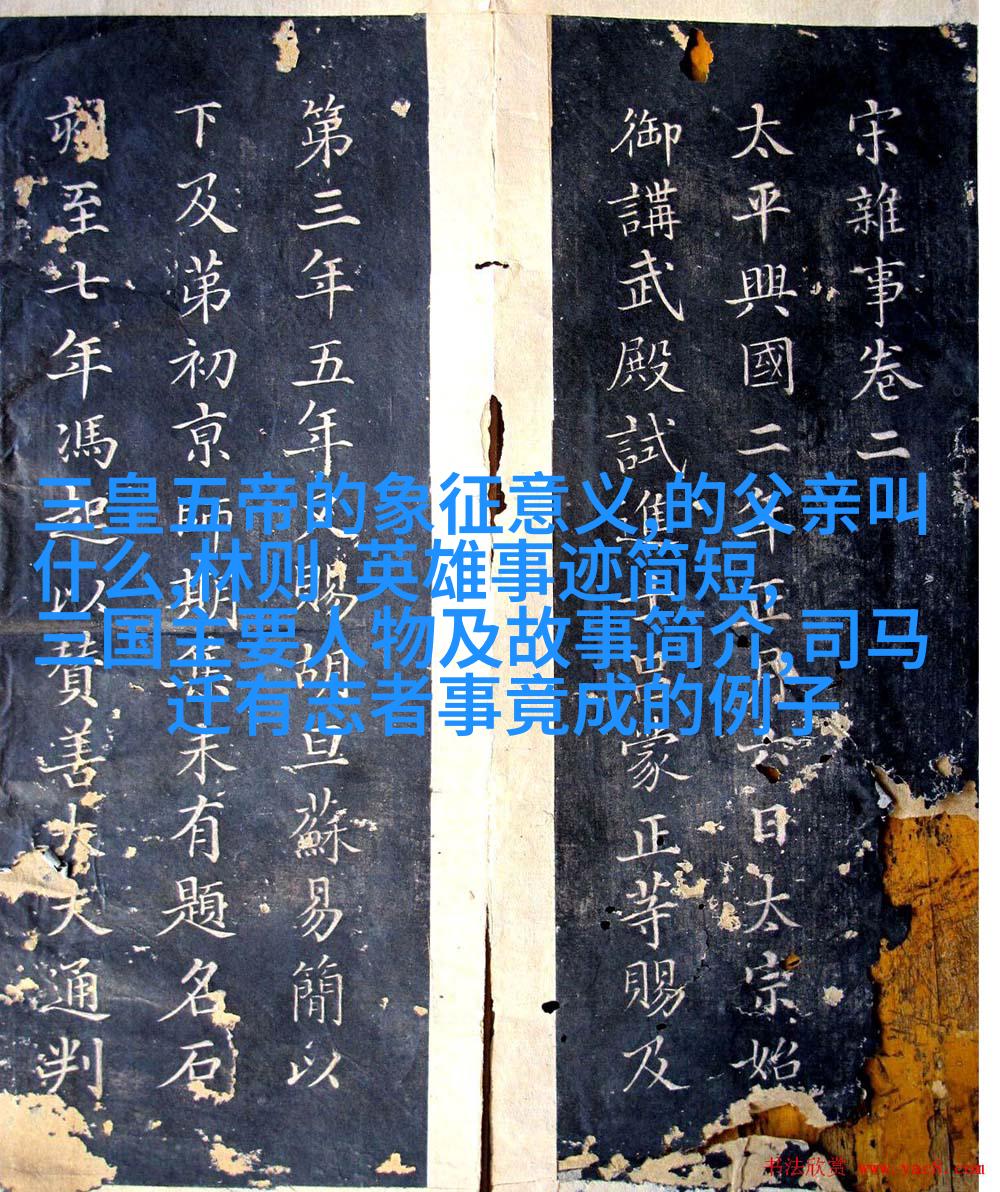 宋雜事卷二
太平興國二年正月六日太宗始
御講武殿試進士呂蒙正等賜及
第三年五年又賜胡旦蘇易簡以
下及苐初京師期集未有題名石
刻至七年馮起以贊善大夫通判
三皇五帝的象征意义,的父亲叫
什么,林则 英雄事迹简短,
三国主要人物及故事简介,司马
迁有志者事竟成的例子
书法欣赏 www.yac8.com